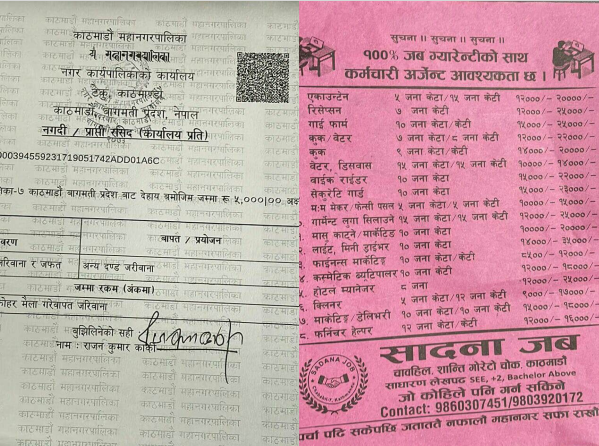 काठमाडौं महानगरपालिका
नगर कार्यपालिकाको कार्यालय
टेकु, काठमाण्डौ
काठमाडौं, बागमती प्रदेश, नेपाल
नगदी / प्राप्ती रसिद (कार्यालय प्रति)
000394559231719051742ADD01A6C
का-७ काठमाडौं बागमती प्रदेश बाट देहाय बमोजिम जम्मा रू ५,०००|००
वरण
बापत / प्रयोजन
जरिवाना र जफत
अन्य दण्ड जरीवाना
जम्मा रकम (अंकमा)
फोहर मैला गरेवापत जरिवाना
बुझिलिनेको सही
नाम : राजन कुमार कार्की
सुचना ॥ सुचना ॥ सुचना ॥
१००% जब ग्यारेन्टीको साथ
कर्मचारी अर्जेन्ट आवश्यकता छ ।
एकाउन्टेन ५ जना केटा/१५ जना केटी १२०००/- २००००/-
रिसेप्सन ७ जना केटी १५०००/- २५०००/-
गाई फार्म १० जना केटा/केटी १८०००/- २५०००/-
कुक/वेटर ७ जना केटा/८ जना केटी १२०००/- २२०००/-
कुक ९ जना केटा/केटी १४०००/- २००००/-
वेटर, डिसवास १५ जना केटा/१५ जना केटी १००००/- १४०००/-
वाईक राईडर १० जना केटा
सेकुरेटि गार्ड १० जना केटा १५०००/- २३०००/-
म:म मेकर/फेन्सी पसल ५ जना केटा/५ जना केटी
गार्मेन्ट लुगा सिलाउने १५ जना केटा/१५ जना केटी
मासु काट्ने/मार्केटिङ १० जना केटा
लाईट, मिनी ड्राईभर १० जना केटा १४०००/- ३५०००/-
फाईनल्स मार्केटिङ १० जना केटा/केटी
कस्मेटिक ब्यूटिपालर १० जना केटी १२०००/- १८०००/-
होटल म्यानेजर ८ जना
क्लिनर ५ जना केटा/१२ जना केटी
मार्केटिङ/डेलिभरी १० जना केटा/केटी १५०००/- १८०००/-
फर्निचर हेल्पर १२ जना केटा/केटी १२०००/- १६०००/-
SADANA JOB
सादना जब
चावहिल, शान्ति गोरेटो चोक, काठमाडौं
साधारण लेखपढ SEE, +2, Bachelor Above
जो कोहिले पनि गर्न सकिने
Contact: 9860307451/9803920172
पर्चा पढि सकेपछि जतातते नफालौ महानगर सफा राखौ